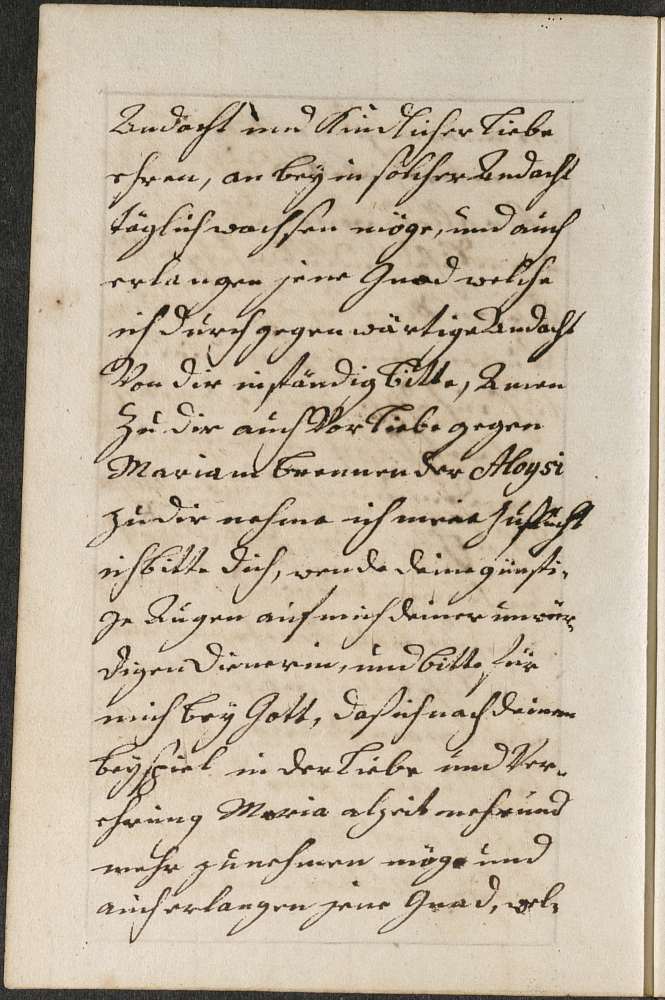 Andacht und Kindlicher Liebe
ehren, an bey in solcher Andacht
täglich wachsen möge, und auch
erlangen jene Gnad welche
ich durch gegenwärtige Andacht
Von dir inständig bitte, Amen
Zu dir auch Vor Liebe gegen
Mariam brennender Aloysi
zu dir nehme ich meine Zuflucht
ich bitte dich, wende deine günsti-
ge Augen auf mich deiner unwür-
digen Dienerin, und bitte für
mich bey Gott, daß ich nach deinem
beyspiel in der Liebe und Ver-
ehrung Maria alzeit mehr und
mehr zunehmen möge und
auch erlangen jene Gnad, wel-